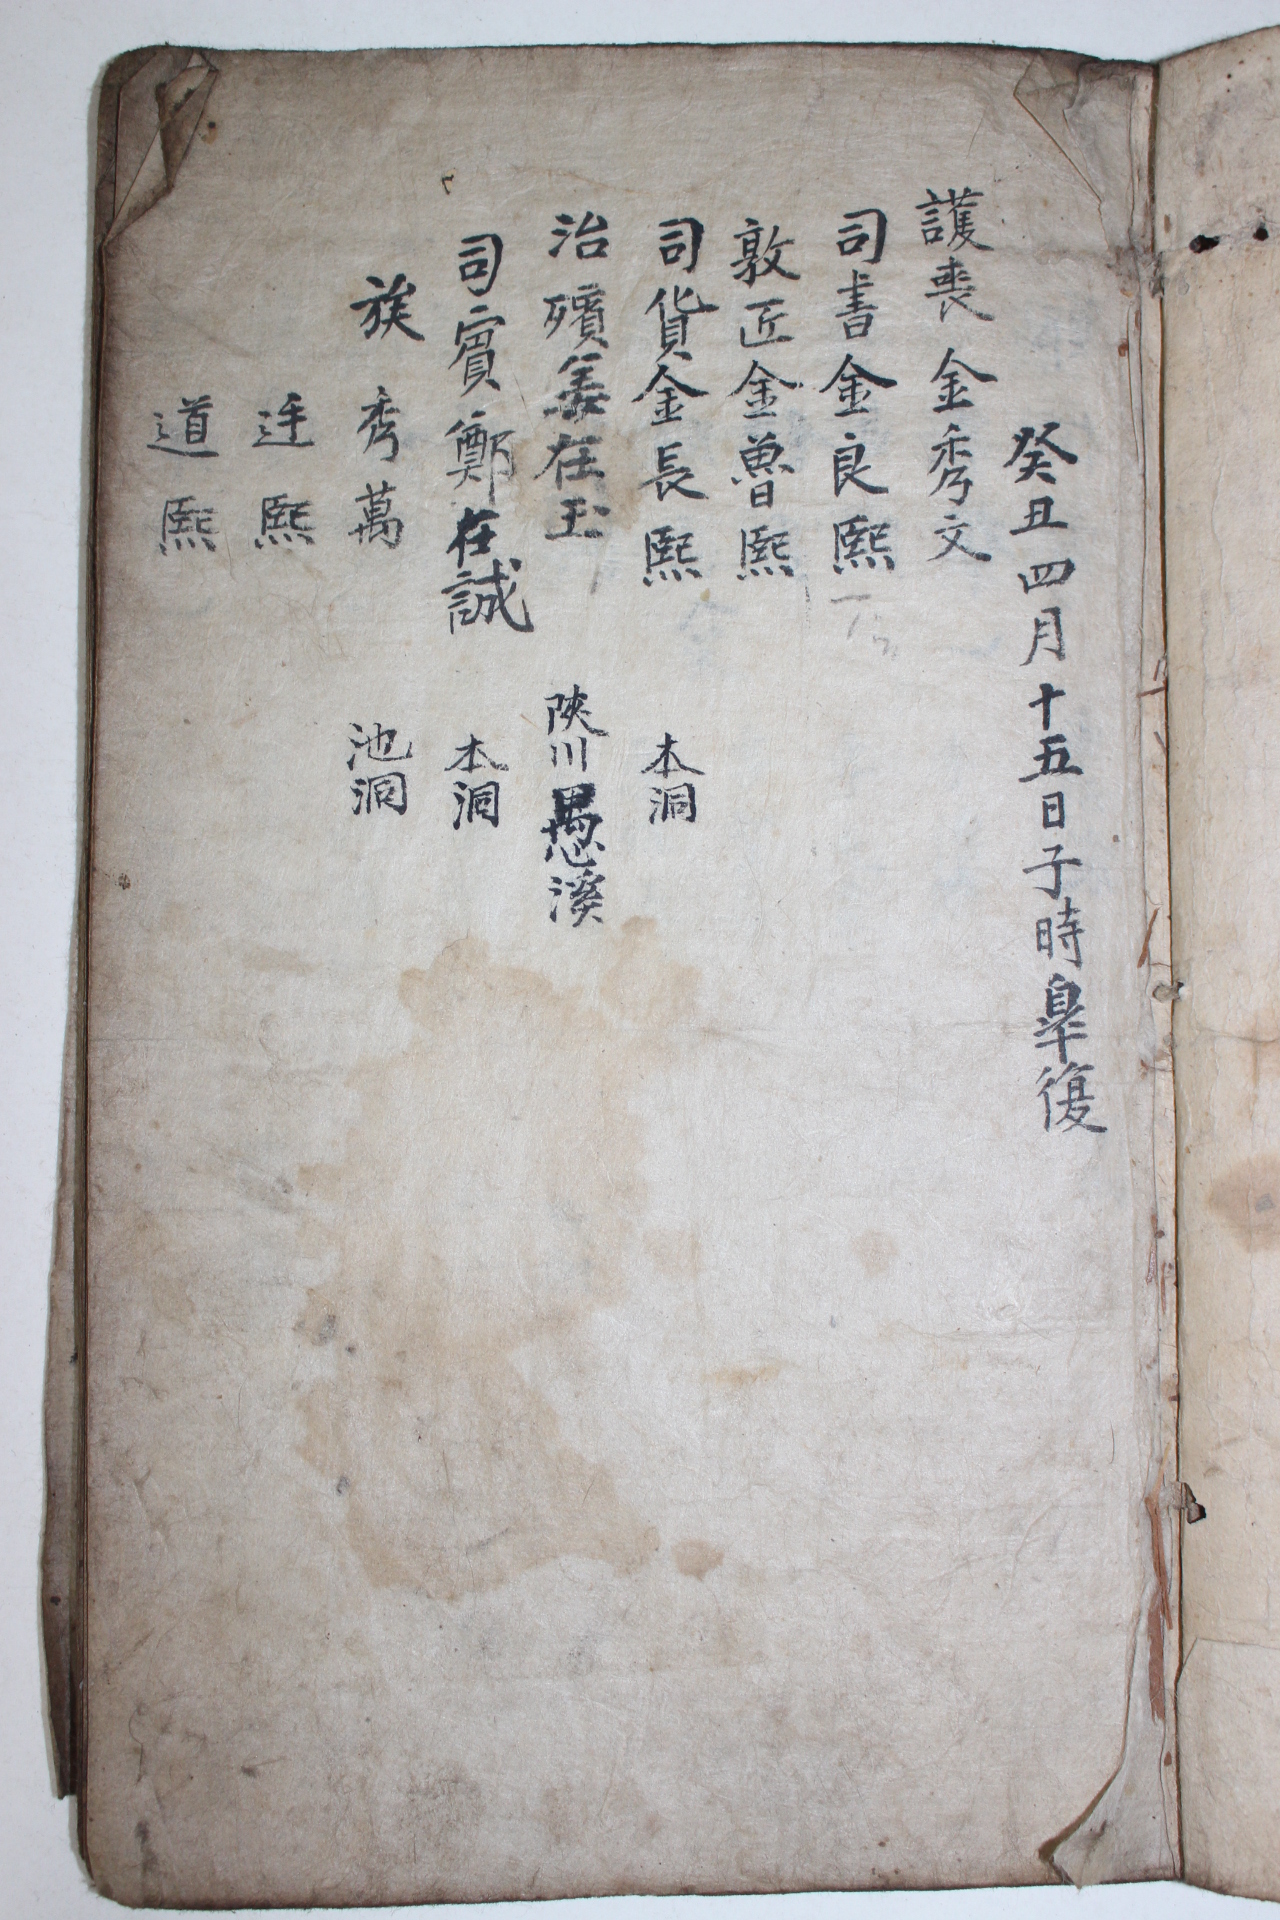 癸丑四月十五日子時皐復
護喪金秀文
司書金良熙
敦匠金魯熙
司貨金長熙 本洞
治殯姜在玉 陜川愚溪
司賓鄭在誠 本洞
族秀萬 池洞
熙
道熙